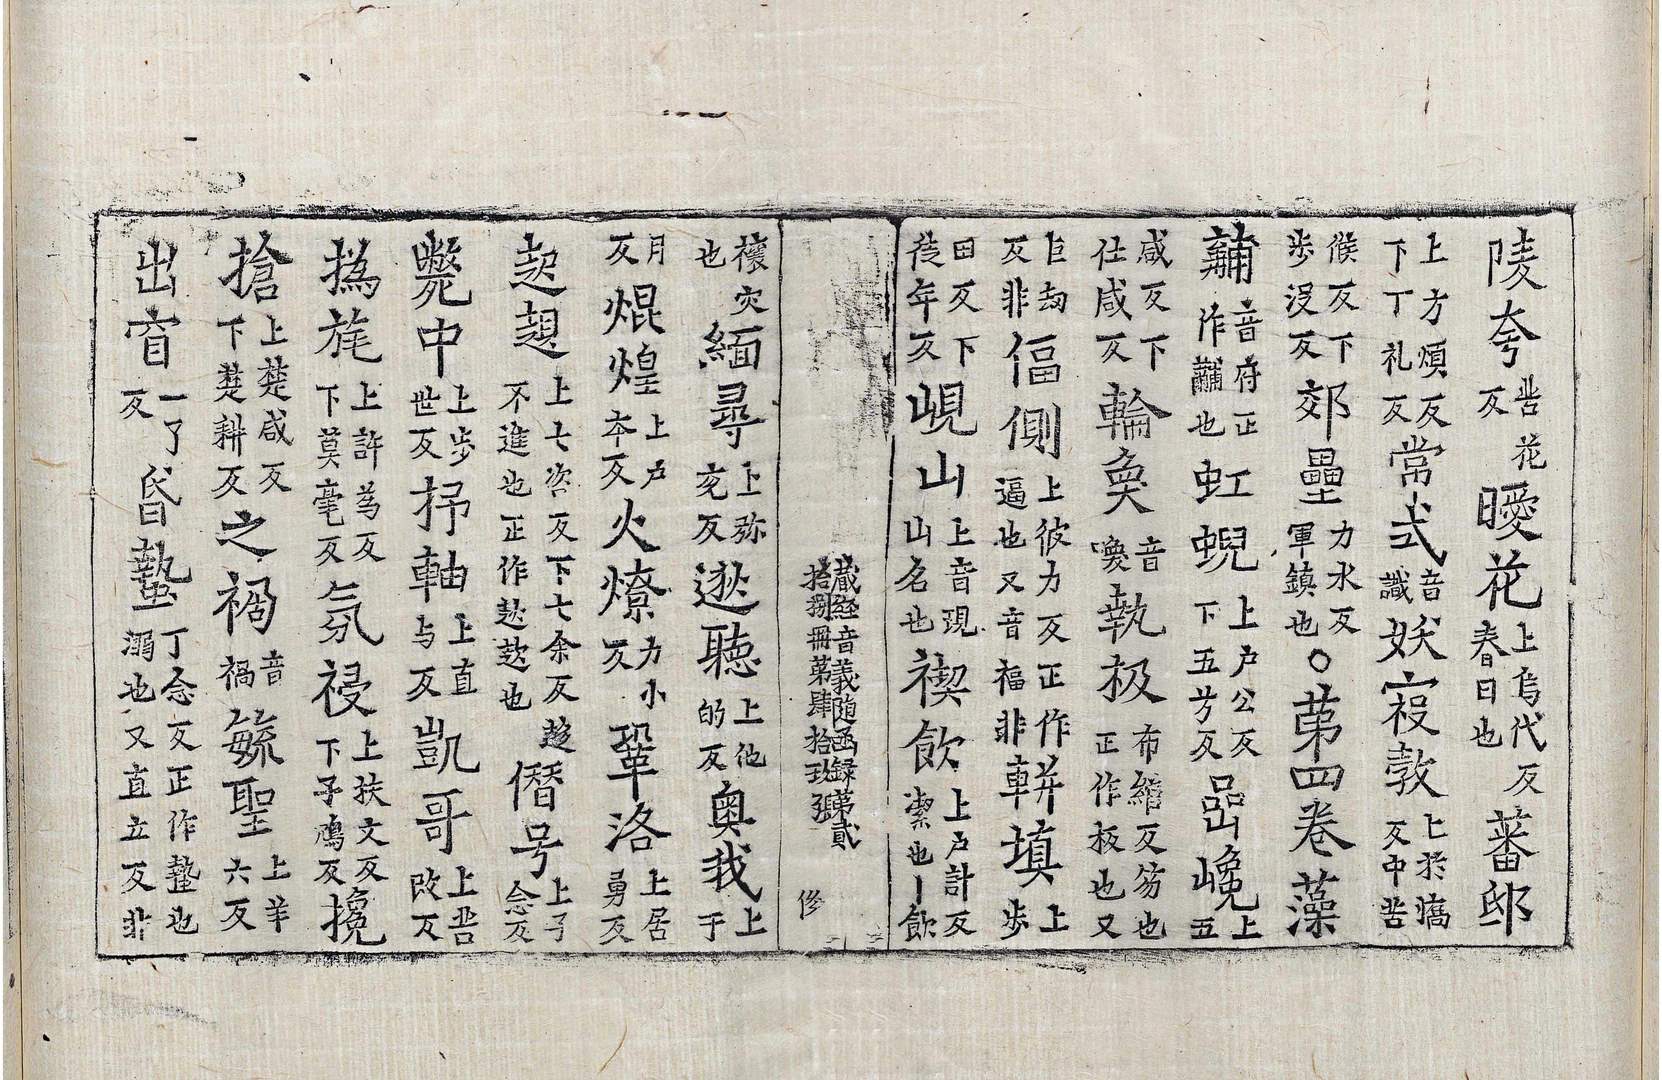 陵夸苦花反曖花上烏代反春日也蕃邸
上方煩反下丁礼反常式音識妖寇敦上於憍反中苦
候反下步没反郊壘力水反軍鎮也○苐四卷藻
黼音府正作黼也虹蜺上户公反下五兮反嵒嶮上五
咸反下仕咸反輪奐音喚執极布綰反笏也正作板也又
巨劫反非偪側上彼力反正作逼也又音福非輧填上步
田反下徒年反峴山上音現山名也禊飲上户計反潔也丨飲
藏経音義随函録苐貳拾捌冊苐肆拾玖張 修
禳灾也緬尋上弥兖反逖聽上他的反奥我上于
月反焜煌上户本反火燎力小反鞏洛上居勇反
趑趄上七咨反下七余反不進也正作趑趄也僭号上子念反
斃中上步世反抒軸上直与反凱哥上苦改反
撝旄上許為反下莫毫反氛祲上扶文反下子鴆反攙
搶上楚咸反下楚耕反之禍音禍毓聖上羊六反
出窅一了反昏墊丁念反正作墊也溺也又直立反非